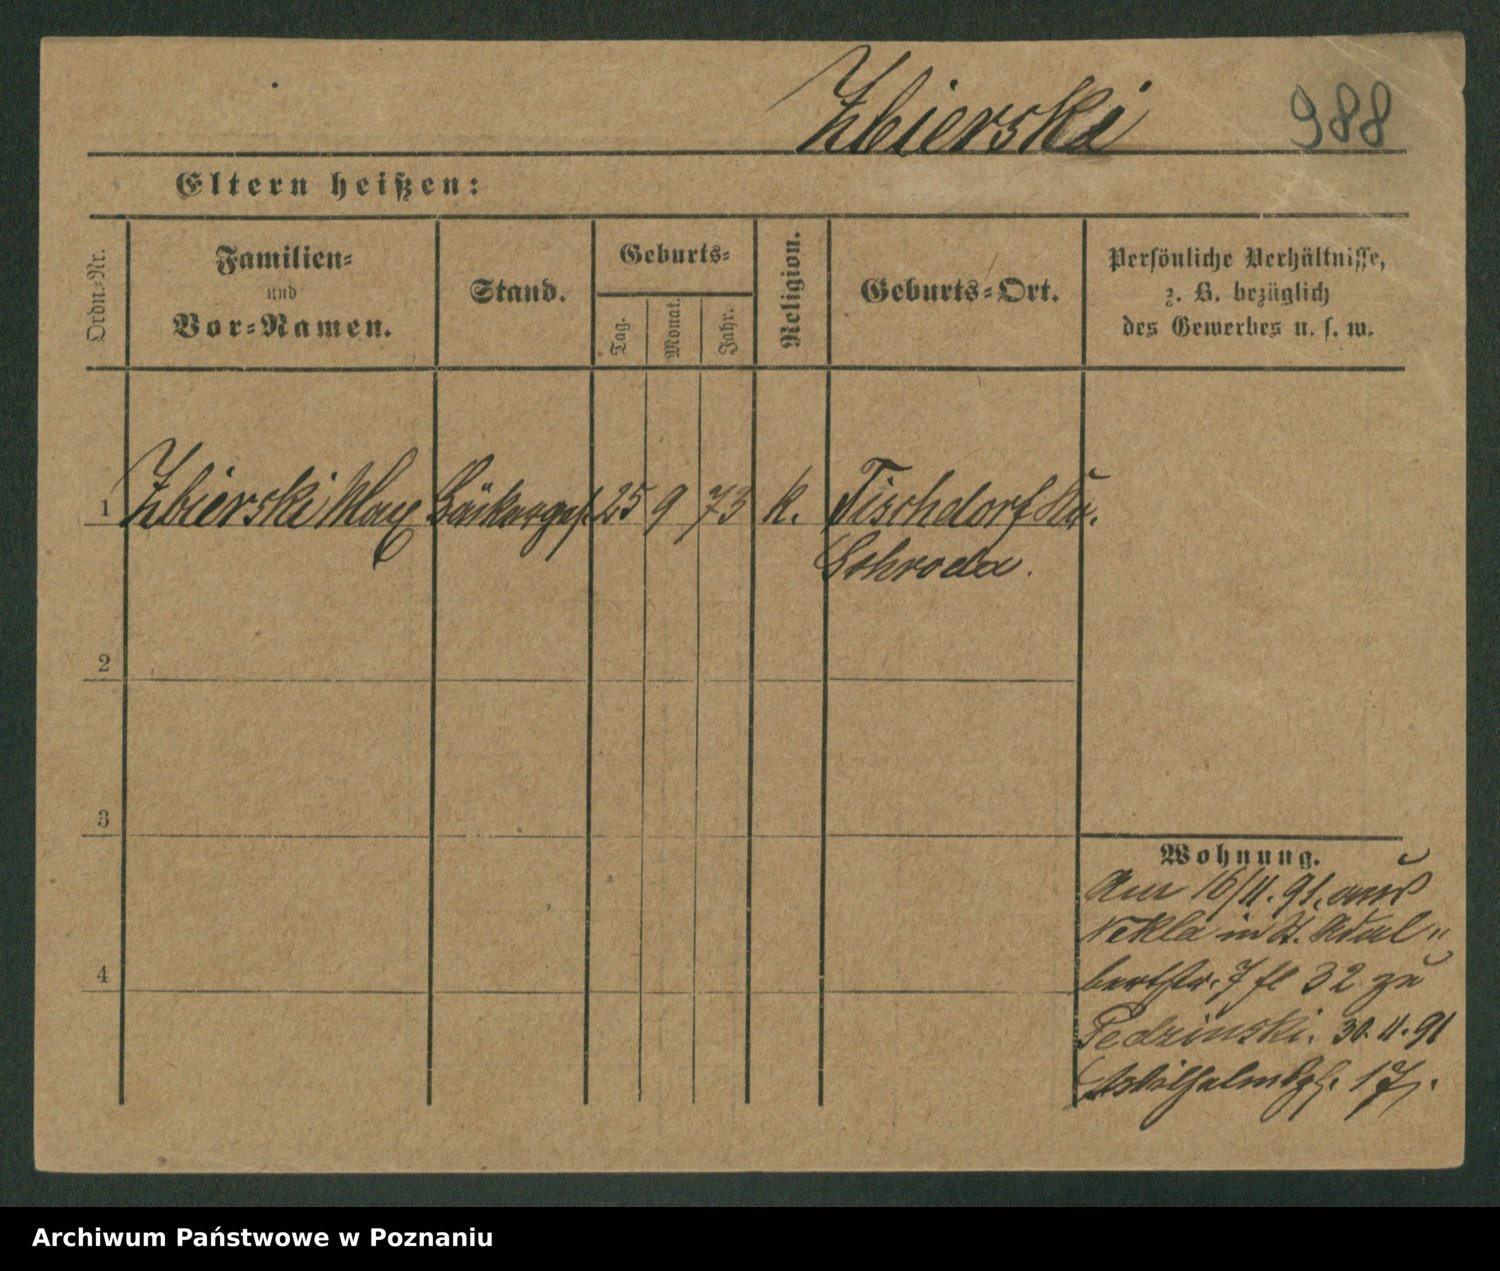 Zbierski 988
Eltern heißen:
Ordn.-Nr.
Familien-
und
Vor-Namen.
Stand.
Geburts-
Tag.
Monat.
Jahr.
Religion.
Geburts-Ort.
Persönliche Verhältnisse,
z. B. bezüglich
des Gewerbes u. s. w.
1 Zbierski Max Bäckerges. 25 9 73 k. Tischdorf Kr.
Schroda.
2
3
4
Wohnung.
Am 16/11. 91. aus
Nekla in St. Adal"
bertstr. 7 fl 32 zu
Pedzinski. 30. 11. 91
Wilhelmspl. 17.
Archiwum Państwowe w Poznaniu